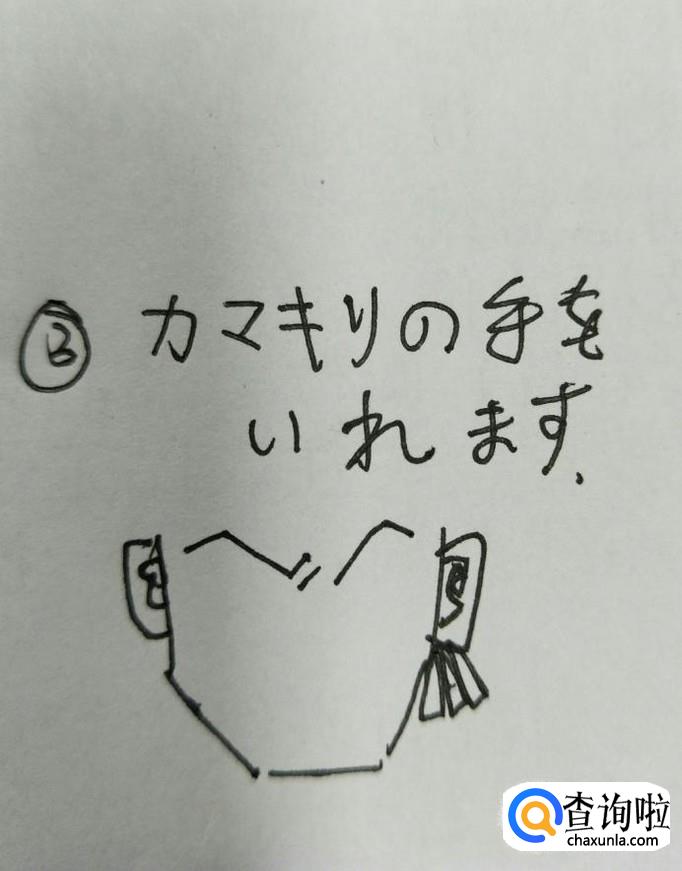 ③ カマキリの手を
いれます.
查询啦
chaxunla.com